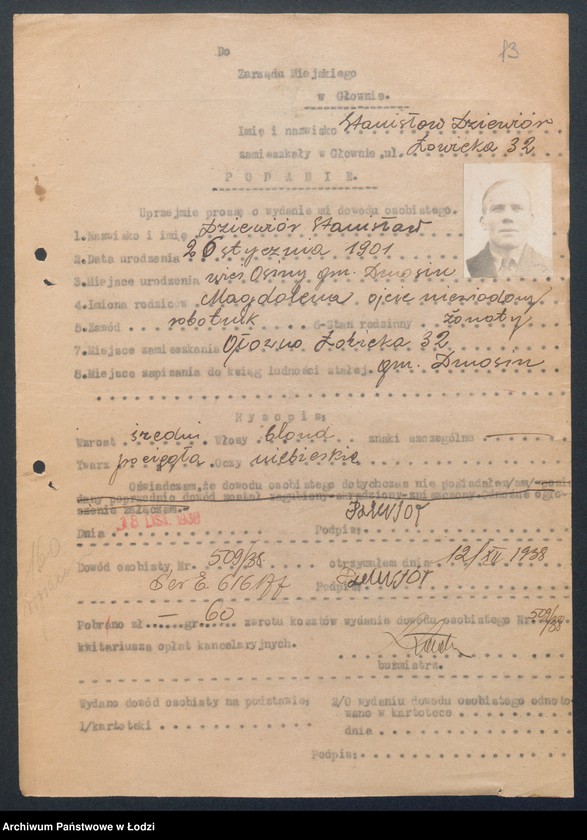 13
Do
Zarządu Miejskiego
w Głownie.
Imię i nazwisko Stanisław Dziewiór
zamieszkały w Głownie, ul. Łowicka 32
PODANIE.
Uprzejmie proszę o wydanie mi dowodu osobistego.
1.Nazwisko i imię Dziewiór Stanisław
2.Data urodzenia 26 stycznia 1901
3.Miejsce urodzenia wieś Osiny gm. Dmosin
4.Imiona rodziców Magdalena ojciec niewiadomy
5.Zawód robotnik 6-Stan rodzinny żonaty
7.Miejsce zamieszkania Głowno Łowicka 32
8.Miejsce zapisania do ksiąg ludności stałej. gm. Dmosin
Rysopis:
Wzrost średni Włosy blond znaki szczególne —
Twarz pociągła Oczy niebieskie
Oświadczam, że dowodu osobistego dotychczas nie posiadałem/am/-
dany poprzednio dowód został zagubiony-skradziony-zniszczony. Odnośne ogło-
szenie załączam.-
Dnia 8 LIST. 1938 Podpis:
Dowód osobisty Nr. 509/38 otrzymałem dnia 12/XII 1938
Ser E 616 Podpis:
Pobrano zł — gr. 60 zwrotu kosztów wydania dowodu osobistego Nr. 509/38
kwitariusza opłat kancelaryjnych.
burmistrz.
Wydano dowód osobisty na podstawie: 2/O wydaniu dowodu osobistego odnoto-
wano w kartotece
1/kartoteki dnia
Podpis:
Archiwum Państwowe w Łodzi